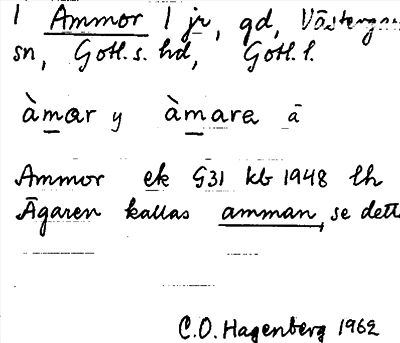 1 Ammor 1 jr, gd, Västergarn
sn, Gotl. s. hd, Gotl. l.
àmar y àmara ā
Ammor ek G31 kb 1948 lh
Ägaren kallas amman, se detta
C.O. Hagenberg 1962